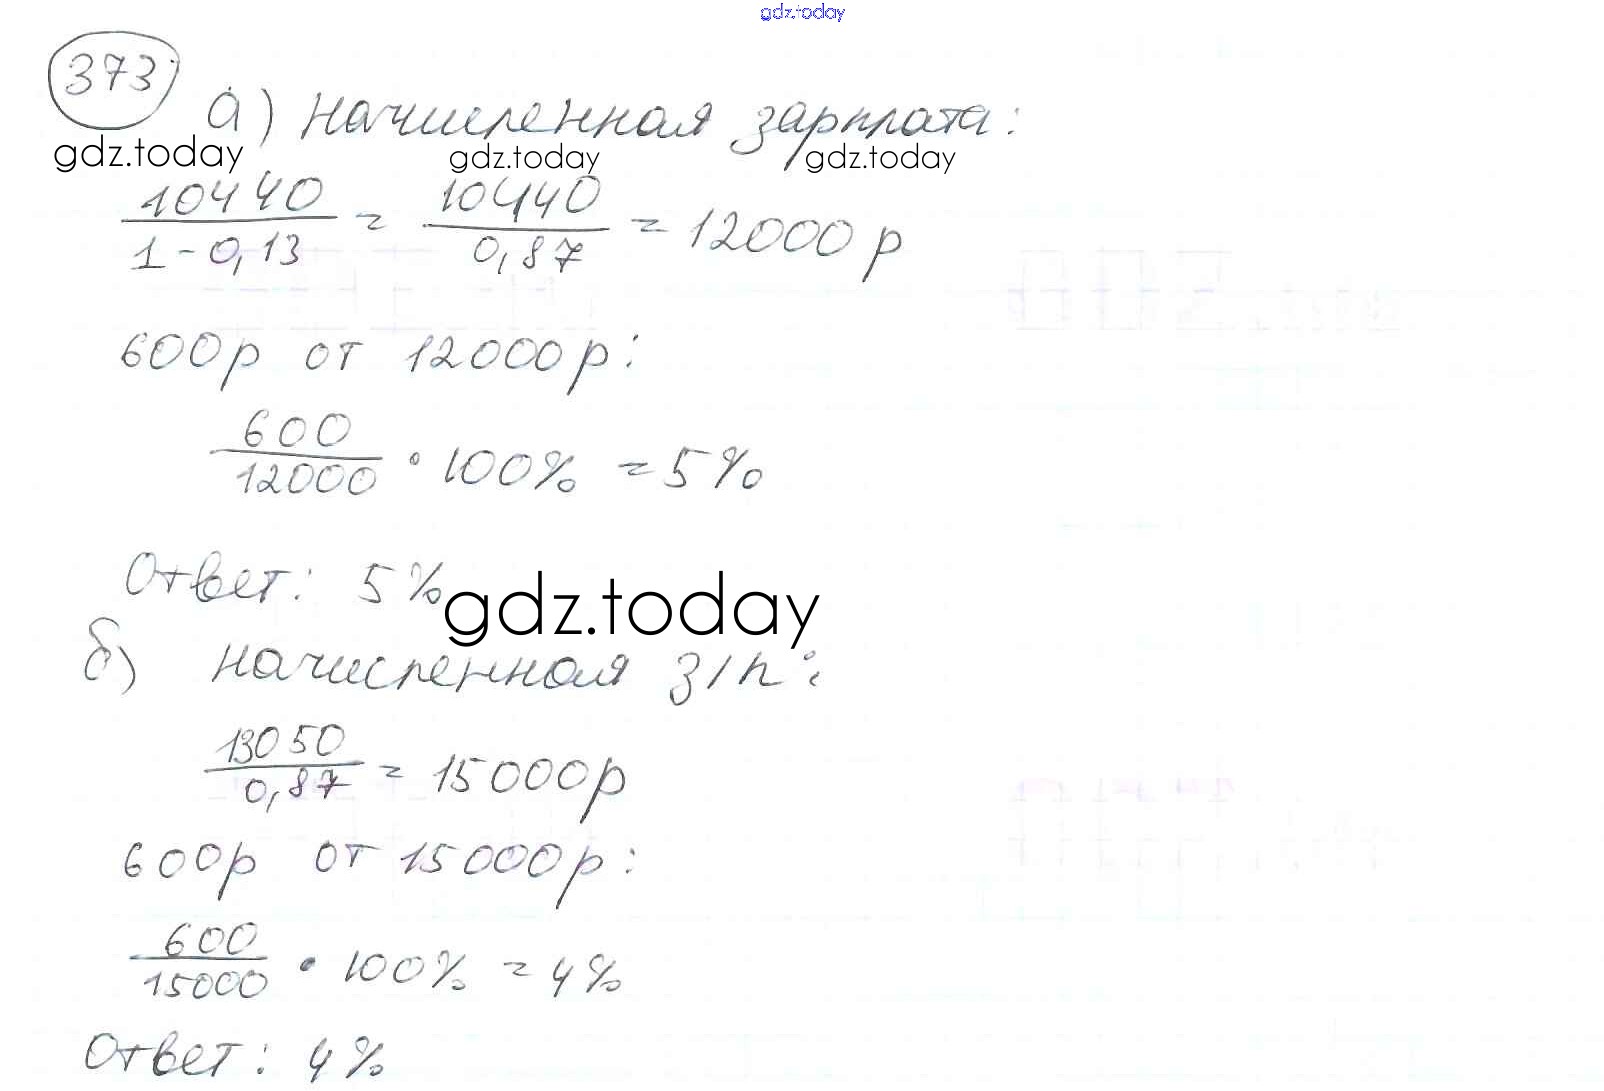 gdz.today
373
а) начисленная зарплата:
gdz.today gdz.today gdz.today
10440 / 1 - 0,13 = 10440 / 0,87 = 12000 р
600р от 12000р:
600 / 12000 · 100% = 5%
Ответ: 5%
gdz.today
б) начисленная з/п:
13050 / 0,87 = 15000р
600р от 15000р:
600 / 15000 · 100% = 4%
Ответ: 4%